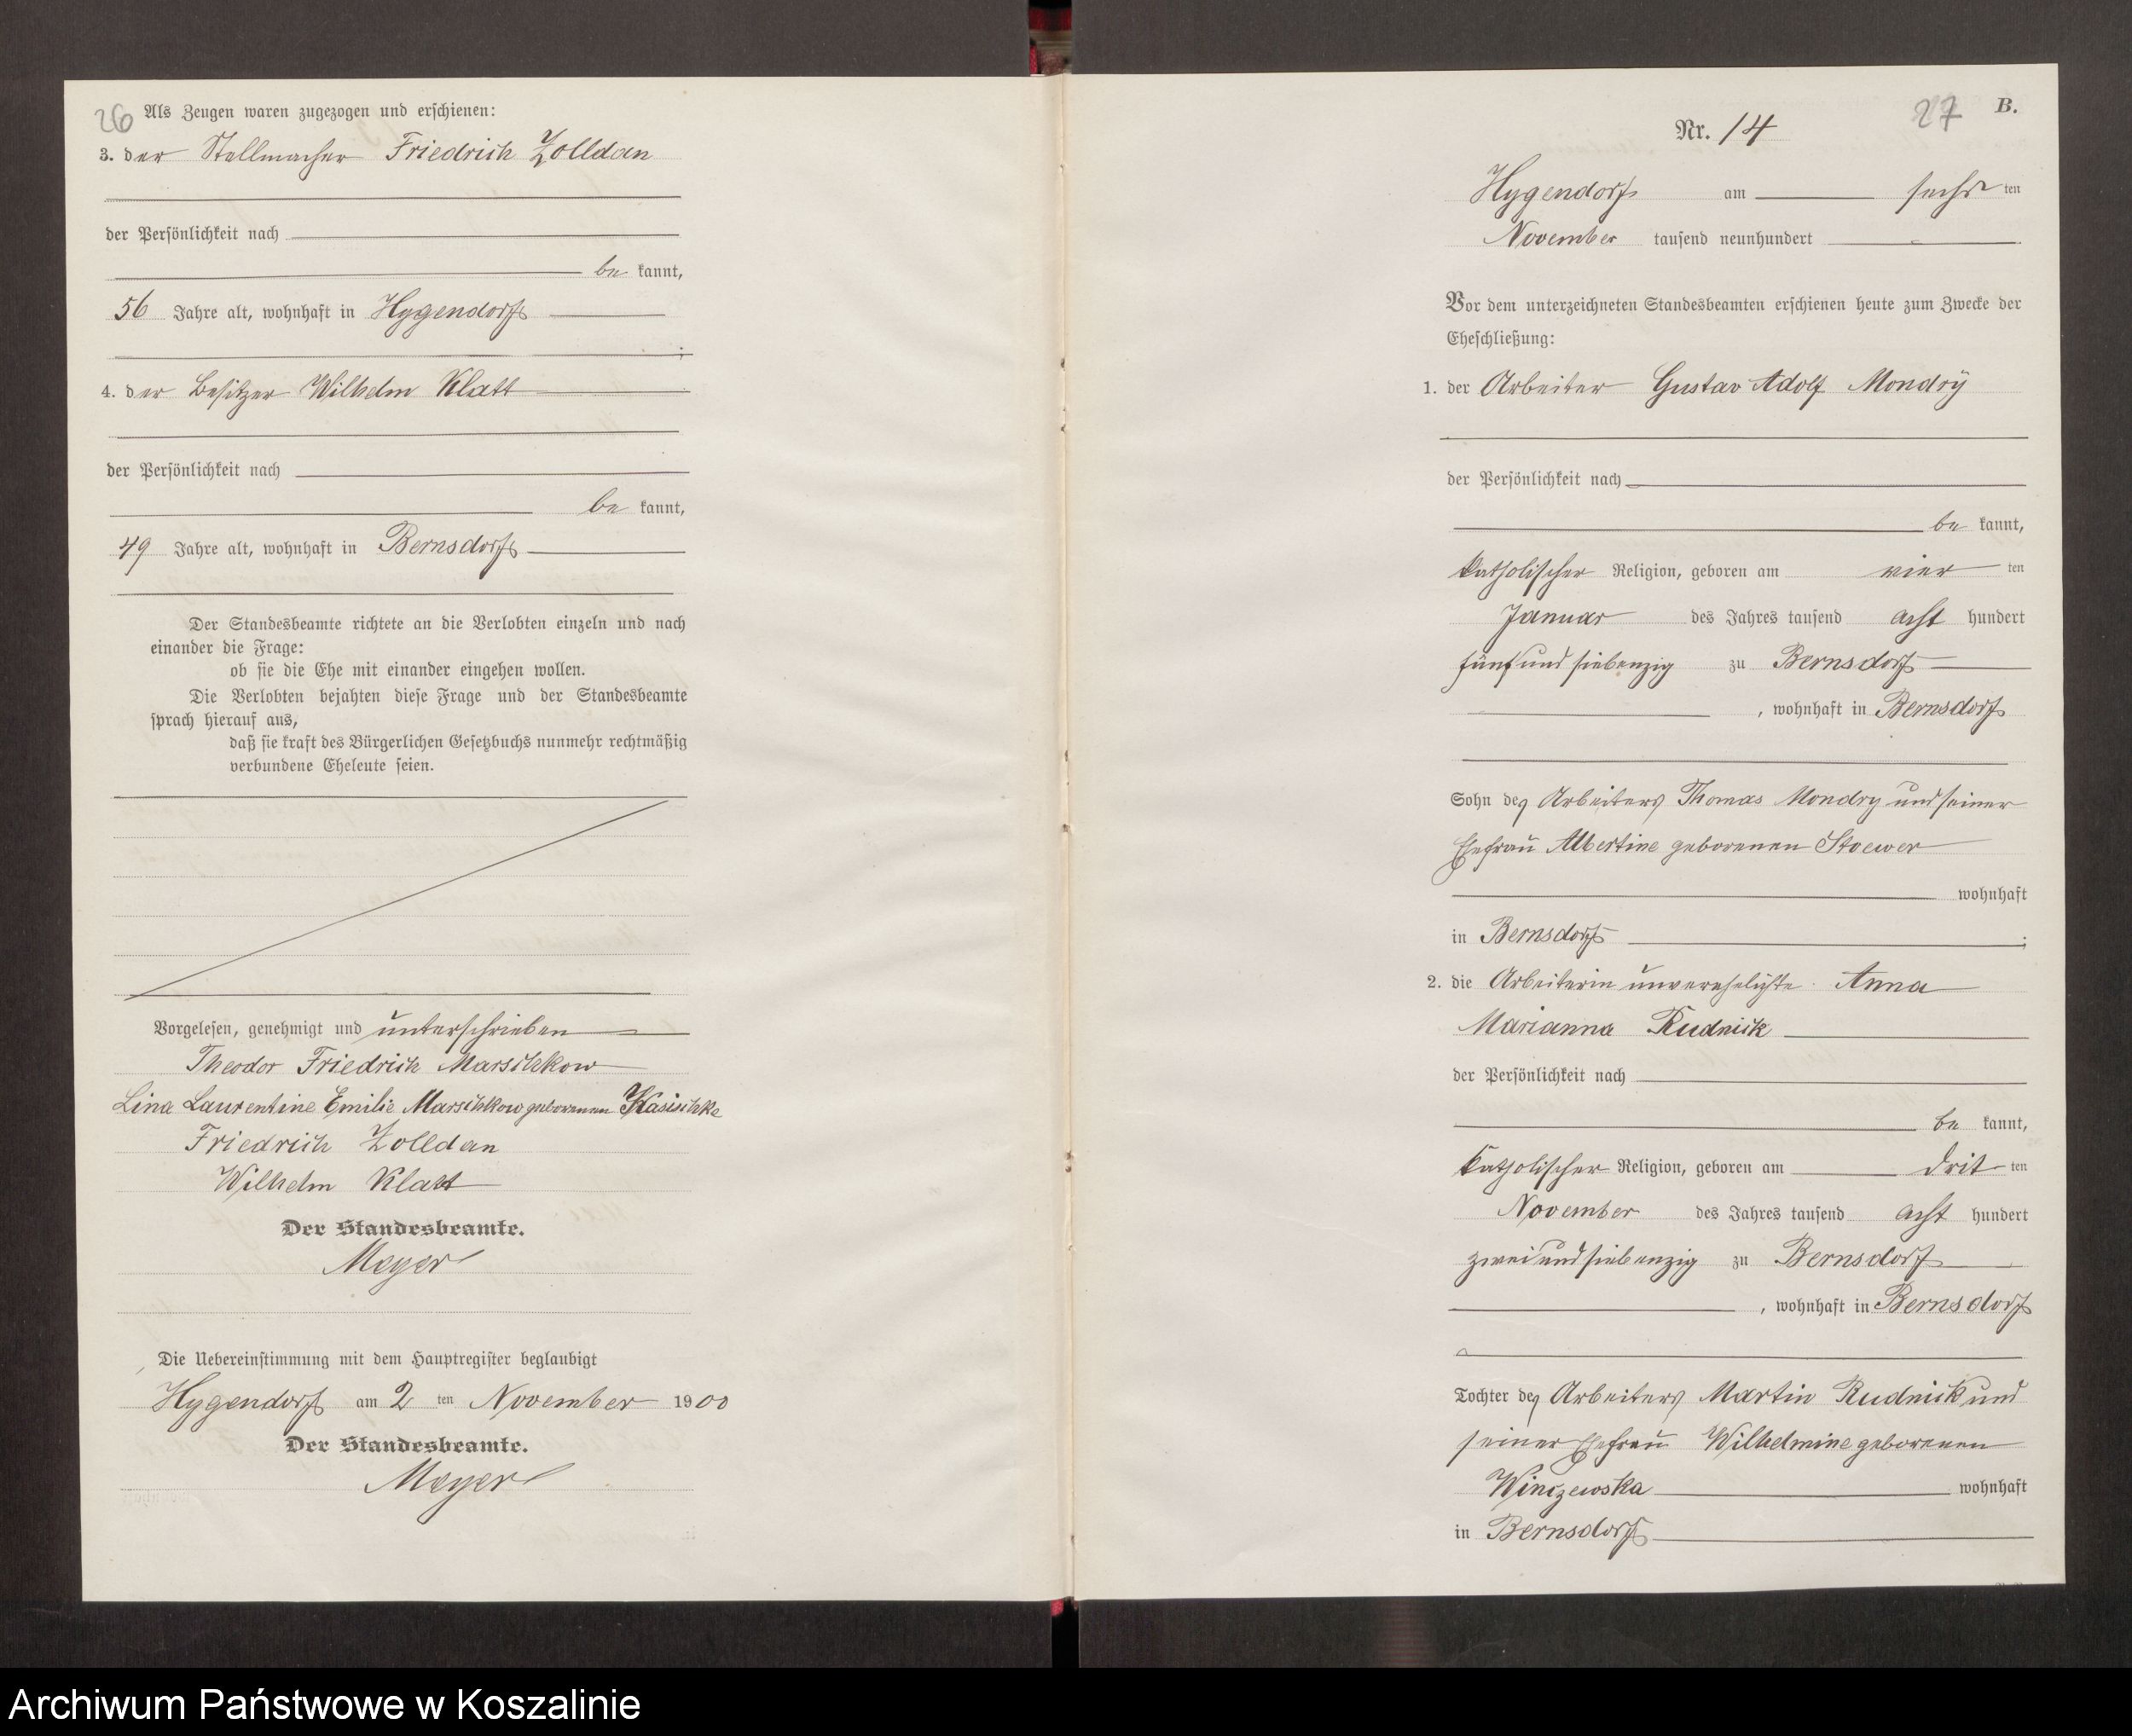 26
Als Zeugen waren zugezogen und erschienen:
3. der Stellmacher Friedrich Zolldan
der Persönlichkeit nach
be kannt,
56 Jahre alt, wohnhaft in Hygendorf
;
4. der Besitzer Wilhelm Klatt
der Persönlichkeit nach
be kannt,
49 Jahre alt, wohnhaft in Bernsdorf
Der Standesbeamte richtete an die Verlobten einzeln und nach
einander die Frage:
ob sie die Ehe mit einander eingehen wollen.
Die Verlobten bejahten diese Frage und der Standesbeamte
sprach hierauf aus,
daß sie kraft des Bürgerlichen Gesetzbuchs nunmehr rechtmäßig
verbundene Eheleute seien.
Vorgelesen, genehmigt und unterschrieben
Theodor Friedrich Marschkow
Lina Laurentine Emilie Marschkow geborenen Kasischke
Friedrich Zolldan
Wilhelm Klatt
Der Standesbeamte.
Meyer
Die Uebereinstimmung mit dem Hauptregister beglaubigt
Hygendorf am 2 ten November 1900
Der Standesbeamte.
Meyer
27 B.
Nr. 14
Hygendorf am sechs ten
November tausend neunhundert
Vor dem unterzeichneten Standesbeamten erschienen heute zum Zwecke der
Eheschließung:
1. der Arbeiter Gustav Adolf Mondrÿ
der Persönlichkeit nach
be kannt,
katholischer Religion, geboren am vier ten
Januar des Jahres tausend acht hundert
fünf und siebenzig zu Bernsdorf
, wohnhaft in Bernsdorf
Sohn des Arbeiters Thomas Mondry und seiner
Ehefrau Albertine geborenen Stoewer
wohnhaft
in Bernsdorf ;
2. die Arbeiterin unverehelichte Anna
Marianna Rudnick
der Persönlichkeit nach
be kannt,
katholischer Religion, geboren am drit ten
November des Jahres tausend acht hundert
zwei und siebenzig zu Bernsdorf
, wohnhaft in Bernsdorf
Tochter des Arbeiters Martin Rudnick und
seiner Ehefrau Wilhelmine geborenen
Winczewska wohnhaft
in Bernsdorf
Archiwum Państwowe w Koszalinie